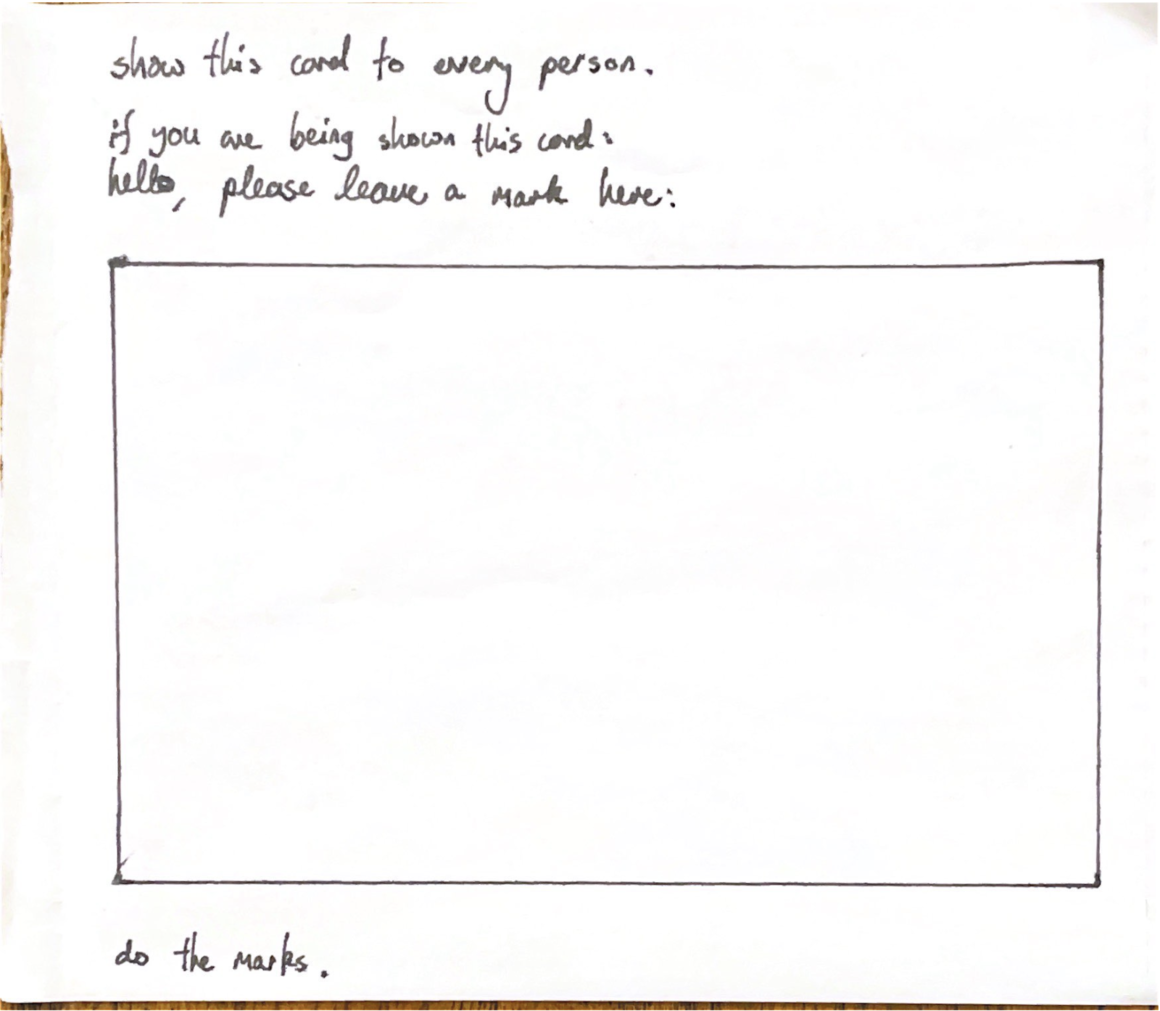 show this card to every person.
if you are being shown this card:
hello, please leave a mark here:
do the marks.